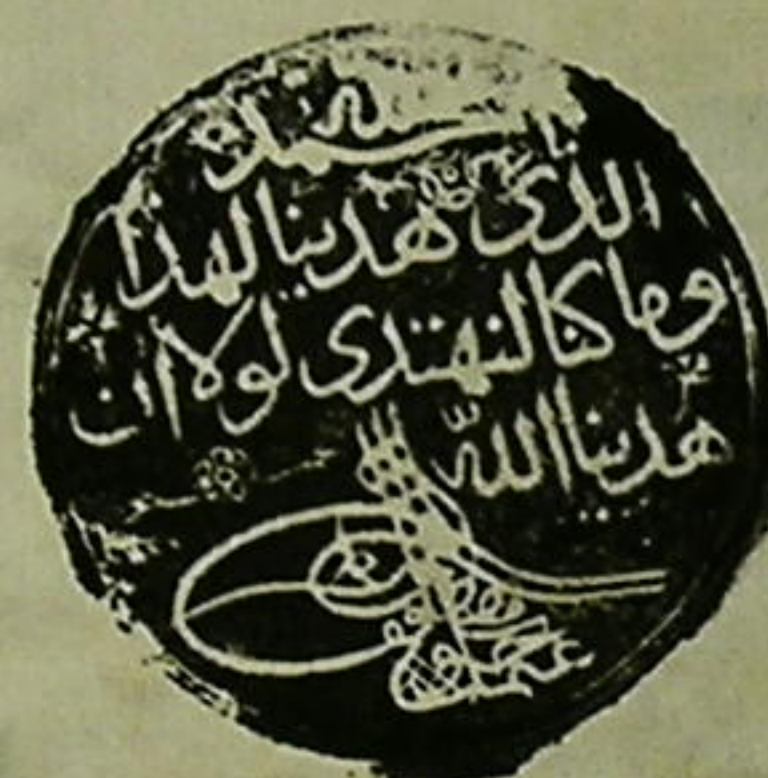 الذى هدينا لهذا
وما كنا لنهتدى لولا ان
هدينا اللّه